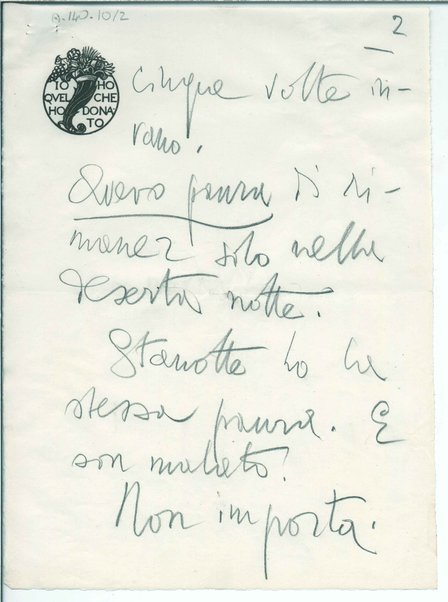 A.140.10/2
2
IO HO
QVEL CHE
HO DONA
TO
cinque volte in-
vano.
Avevo paura di ri-
maner solo nella
deserta notte.
Stanotte ho la
stessa paura. E
son malato!
Non importa.